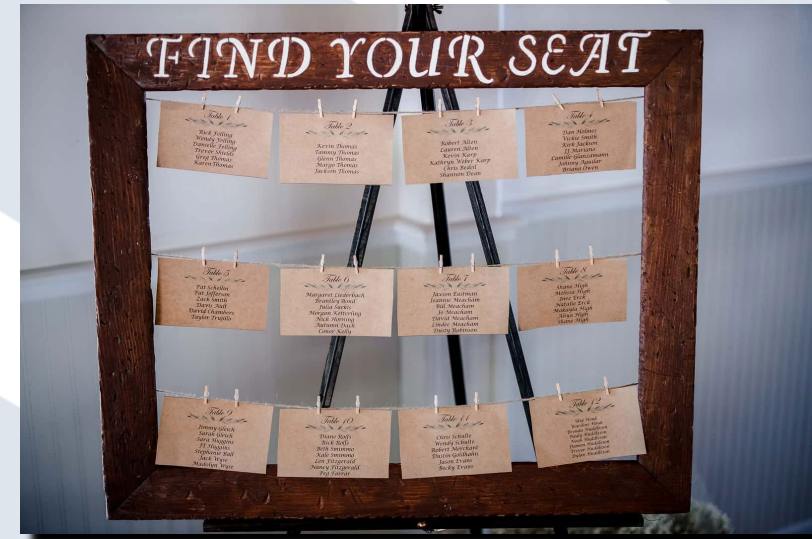 FIND YOUR SEAT
Table 1
Rick Folling
Wendy Folling
Danielle Folling
Trevor Shields
Greg Thomas
Karen Thomas
Table 2
Kevin Thomas
Tammy Thomas
Glenn Thomas
Margo Thomas
Jackson Thomas
Table 3
Robert Allen
Lauren Allen
Kevin Karp
Kathryn Weber Karp
Chris Bedell
Shannon Dean
Table 4
Dan Holmes
Vickie Smith
Kirk Jackson
JJ Mariana
Camille Glanzmann
Johnny Aguilar
Briana Owen
Table 5
Pat Schellin
Pat Jefferson
Zack Smith
Davis Ault
David Chambers
Taylor Trujillo
Table 6
Margaret Liederbach
Brantley Bond
Julia Sarkis
Morgan Ketterling
Nick Horning
Autumn Dack
Conor Kelly
Table 7
Jaxson Eastman
Jeannie Meacham
Bill Meacham
Jo Meacham
David Meacham
Lindee Meacham
Dusty Robinson
Table 8
Shane High
Melissa High
Inez Erck
Natalie Erck
Makayla High
Aliya High
Shane High
Table 9
Jimmy Gleich
Sarah Gleich
Sara Huggins
JT Huggins
Stephanie Ball
Jack Wyse
Madolyn Wyse
Table 10
Diane Rolfs
Rick Rolfs
Beth Simmms
Kale Simmms
Len Fitzgerald
Nancy Fitzgerald
Peg Farrar
Table 11
Chris Schulle
Wendy Schulle
Robert Merchant
Dustin Goldhahn
Jason Evans
Becky Evans
Table 12
Hood
Hood
Brenda Huddleson
Paisly Huddleson
Noah Huddleson
Huddleson
Trevor Huddleson
Dylan Huddleson